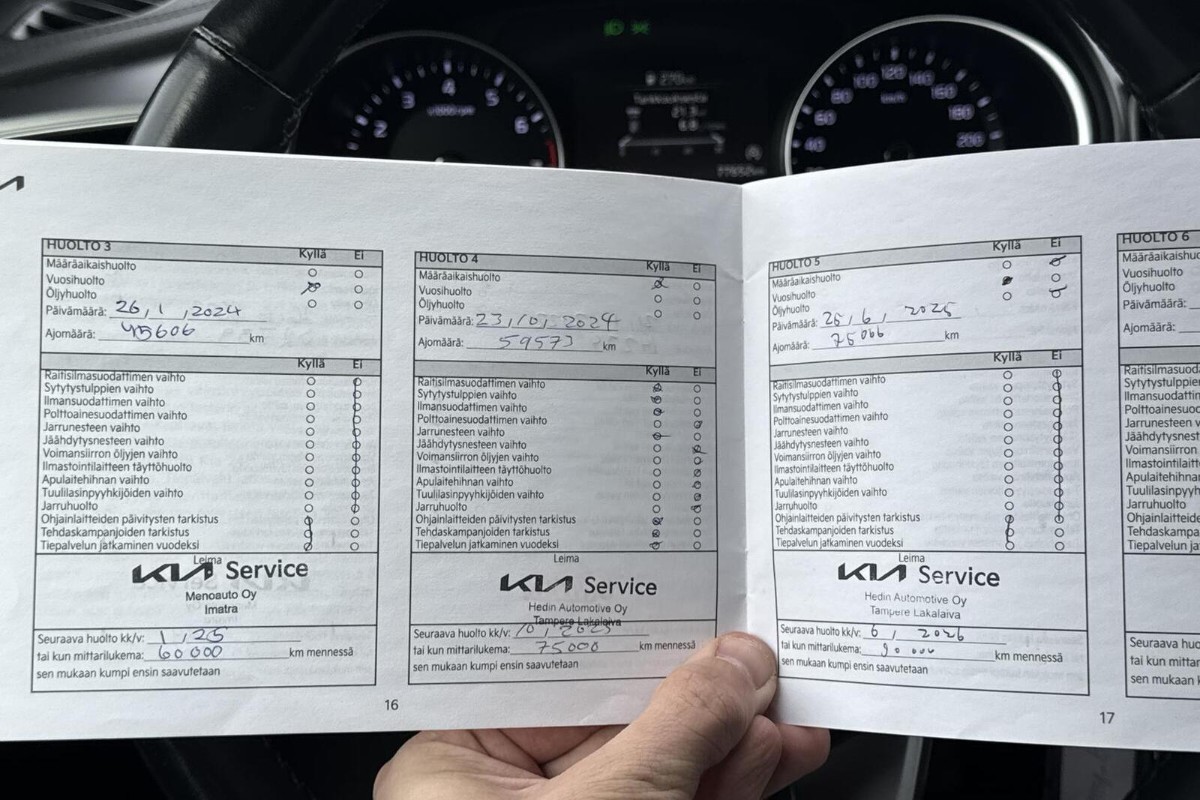 4
3
5
2
x1000 rpm
6
270 km
120
100
140
80
km/h
160
60
180
40
200
HUOLTO 3
Kyllä Ei
Määräaikaishuolto
Vuosihuolto
Öljyhuolto
Päivämäärä: 26, 1, 2024
Ajomäärä: 45606 km
Kyllä Ei
Raitisilmasuodattimen vaihto
Sytytystulppien vaihto
Ilmansuodattimen vaihto
Polttoainesuodattimen vaihto
Jarrunesteen vaihto
Jäähdytysnesteen vaihto
Voimansiirron öljyjen vaihto
Ilmastointilaitteen täyttöhuolto
Apulaitehihnan vaihto
Tuulilasinpyyhkijöiden vaihto
Jarruhuolto
Ohjainlaitteiden päivitysten tarkistus
Tehdaskampanjoiden tarkistus
Tiepalvelun jatkaminen vuodeksi
Leima
KIA Service
Menoauto Oy
Imatra
Seuraava huolto kk/v: 1, 25
tai kun mittarilukema: 60000 km mennessä
sen mukaan kumpi ensin saavutetaan
16
HUOLTO 4
Kyllä Ei
Määräaikaishuolto
Vuosihuolto
Öljyhuolto
Päivämäärä: 23, 10, 2024
Ajomäärä: 59573 km
Kyllä Ei
Raitisilmasuodattimen vaihto
Sytytystulppien vaihto
Ilmansuodattimen vaihto
Polttoainesuodattimen vaihto
Jarrunesteen vaihto
Jäähdytysnesteen vaihto
Voimansiirron öljyjen vaihto
Ilmastointilaitteen täyttöhuolto
Apulaitehihnan vaihto
Tuulilasinpyyhkijöiden vaihto
Jarruhuolto
Ohjainlaitteiden päivitysten tarkistus
Tehdaskampanjoiden tarkistus
Tiepalvelun jatkaminen vuodeksi
Leima
KIA Service
Hedin Automotive Oy
Tampere Lakalaiva
Seuraava huolto kk/v: 10, 2025
tai kun mittarilukema: 75000 km mennessä
sen mukaan kumpi ensin saavutetaan
HUOLTO 5
Kyllä Ei
Määräaikaishuolto
Vuosihuolto
Öljyhuolto
Päivämäärä: 26, 6, 2025
Ajomäärä: 75066 km
Kyllä Ei
Raitisilmasuodattimen vaihto
Sytytystulppien vaihto
Ilmansuodattimen vaihto
Polttoainesuodattimen vaihto
Jarrunesteen vaihto
Jäähdytysnesteen vaihto
Voimansiirron öljyjen vaihto
Ilmastointilaitteen täyttöhuolto
Apulaitehihnan vaihto
Tuulilasinpyyhkijöiden vaihto
Jarruhuolto
Ohjainlaitteiden päivitysten tarkistus
Tehdaskampanjoiden tarkistus
Tiepalvelun jatkaminen vuodeksi
Leima
KIA Service
Hedin Automotive Oy
Tampere Lakalaiva
Seuraava huolto kk/v: 6, 2026
tai kun mittarilukema: 90000 km mennessä
sen mukaan kumpi ensin saavutetaan
17
HUOLTO 6
Määräaikaishuo
Vuosihuolto
Öljyhuolto
Päivämäärä:
Ajomäärä:
Raitisilmasuod
Sytytystulppien
Ilmansuodattim
Polttoainesuod
Jarrunesteen v
Jäähdytysneste
Voimansiirron
Ilmastointilaitt
Apulaitehihnan
Tuulilasinpyyh
Jarruhuolto
Ohjainlaitteide
Tehdaskampan
Tiepalvelun ja
Seuraava huo
tai kun mittari
sen mukaan k